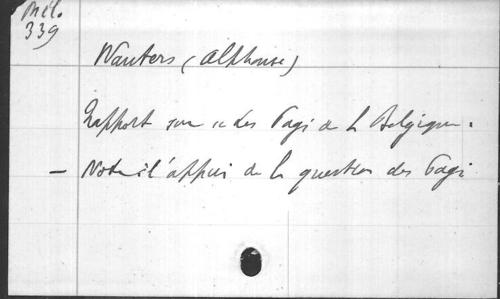 Mél.
339
Wauters (Alphonse)
Rapport sur des Pagi de la Belgique.
— Note à l'appui de la question des Pagi